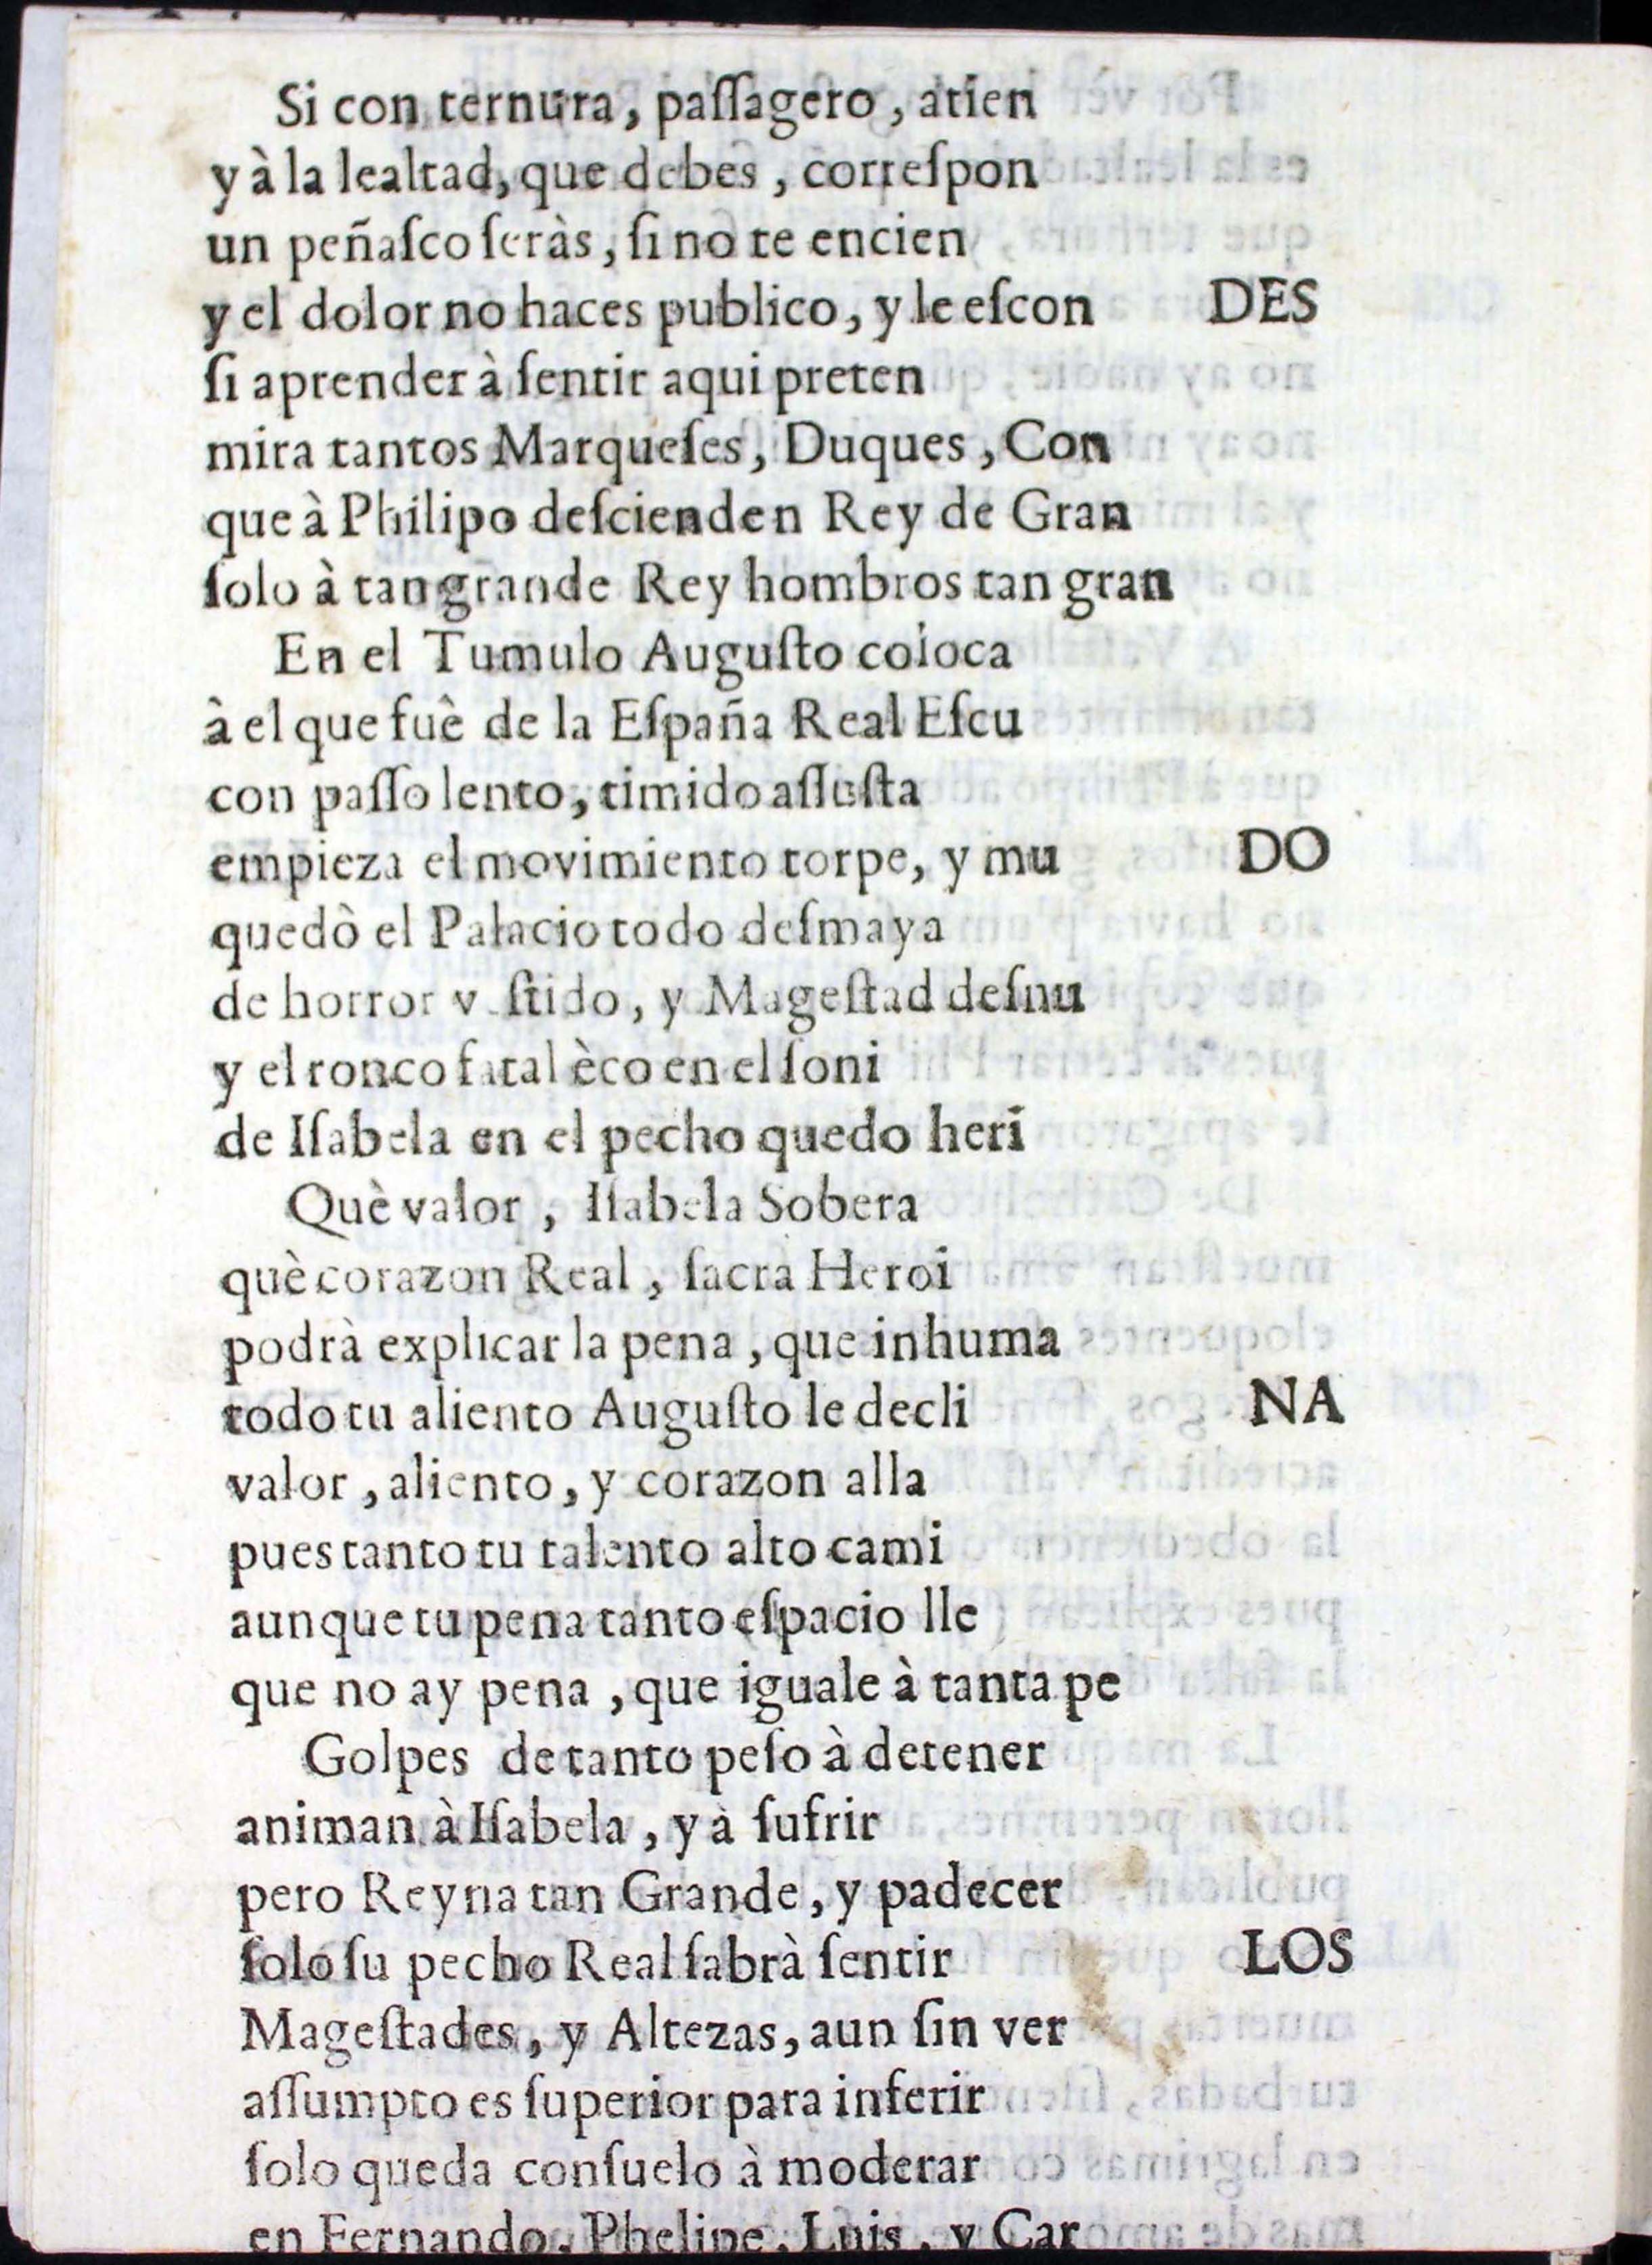 Si con ternura, paſſagero, atien
y à la lealtad, que debes, correſpon
un peñaſco ſeràs, ſi no te encien
y el dolor no haces publico, y le eſcon DES
ſi aprender à ſentir aqui preten
mira tantos Marqueſes, Duques, Con
que à Philipo deſcienden Rey de Gran
ſolo à tan grande Rey hombros tan gran
En el Tumulo Auguſto coloca
à el que fuê de la Eſpaña Real Eſcu
con paſſo lento, timido aſſuſta
empieza el movimiento torpe, y mu DO
quedò el Palacio todo deſmaya
de horror v ſtido, y Mageſtad deſnu
y el ronco fatal èco en el ſoni
de Iſabela en el pecho quedo heri
Què valor, Iſabela Sobera
què corazon Real, ſacra Heroi
podrà explicar la pena, que inhuma
todo tu aliento Auguſto le decli NA
valor, aliento, y corazon alla
pues tanto tu talento alto cami
aunque tu pena tanto eſpacio lle
que no ay pena, que iguale à tanta pe
Golpes de tanto peſo à detener
animan à Iſabela, y à ſufrir
pero Reyna tan Grande, y padecer
ſolo ſu pecho Real ſabrà ſentir LOS
Mageſtades, y Altezas, aun ſin ver
aſſumpto es ſuperior para inferir
ſolo queda conſuelo à moderar
en Fernando, Phelipe, Luis, y Car